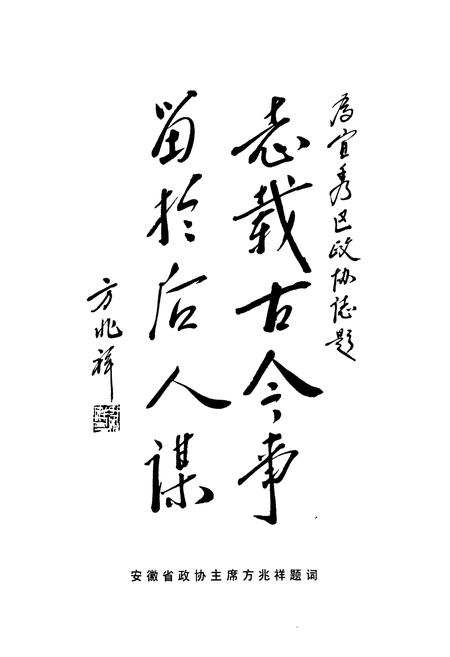 为宜秀区政协志题
志载古今事
留于后人谋
方兆祥
安徽省政协主席方兆祥题词